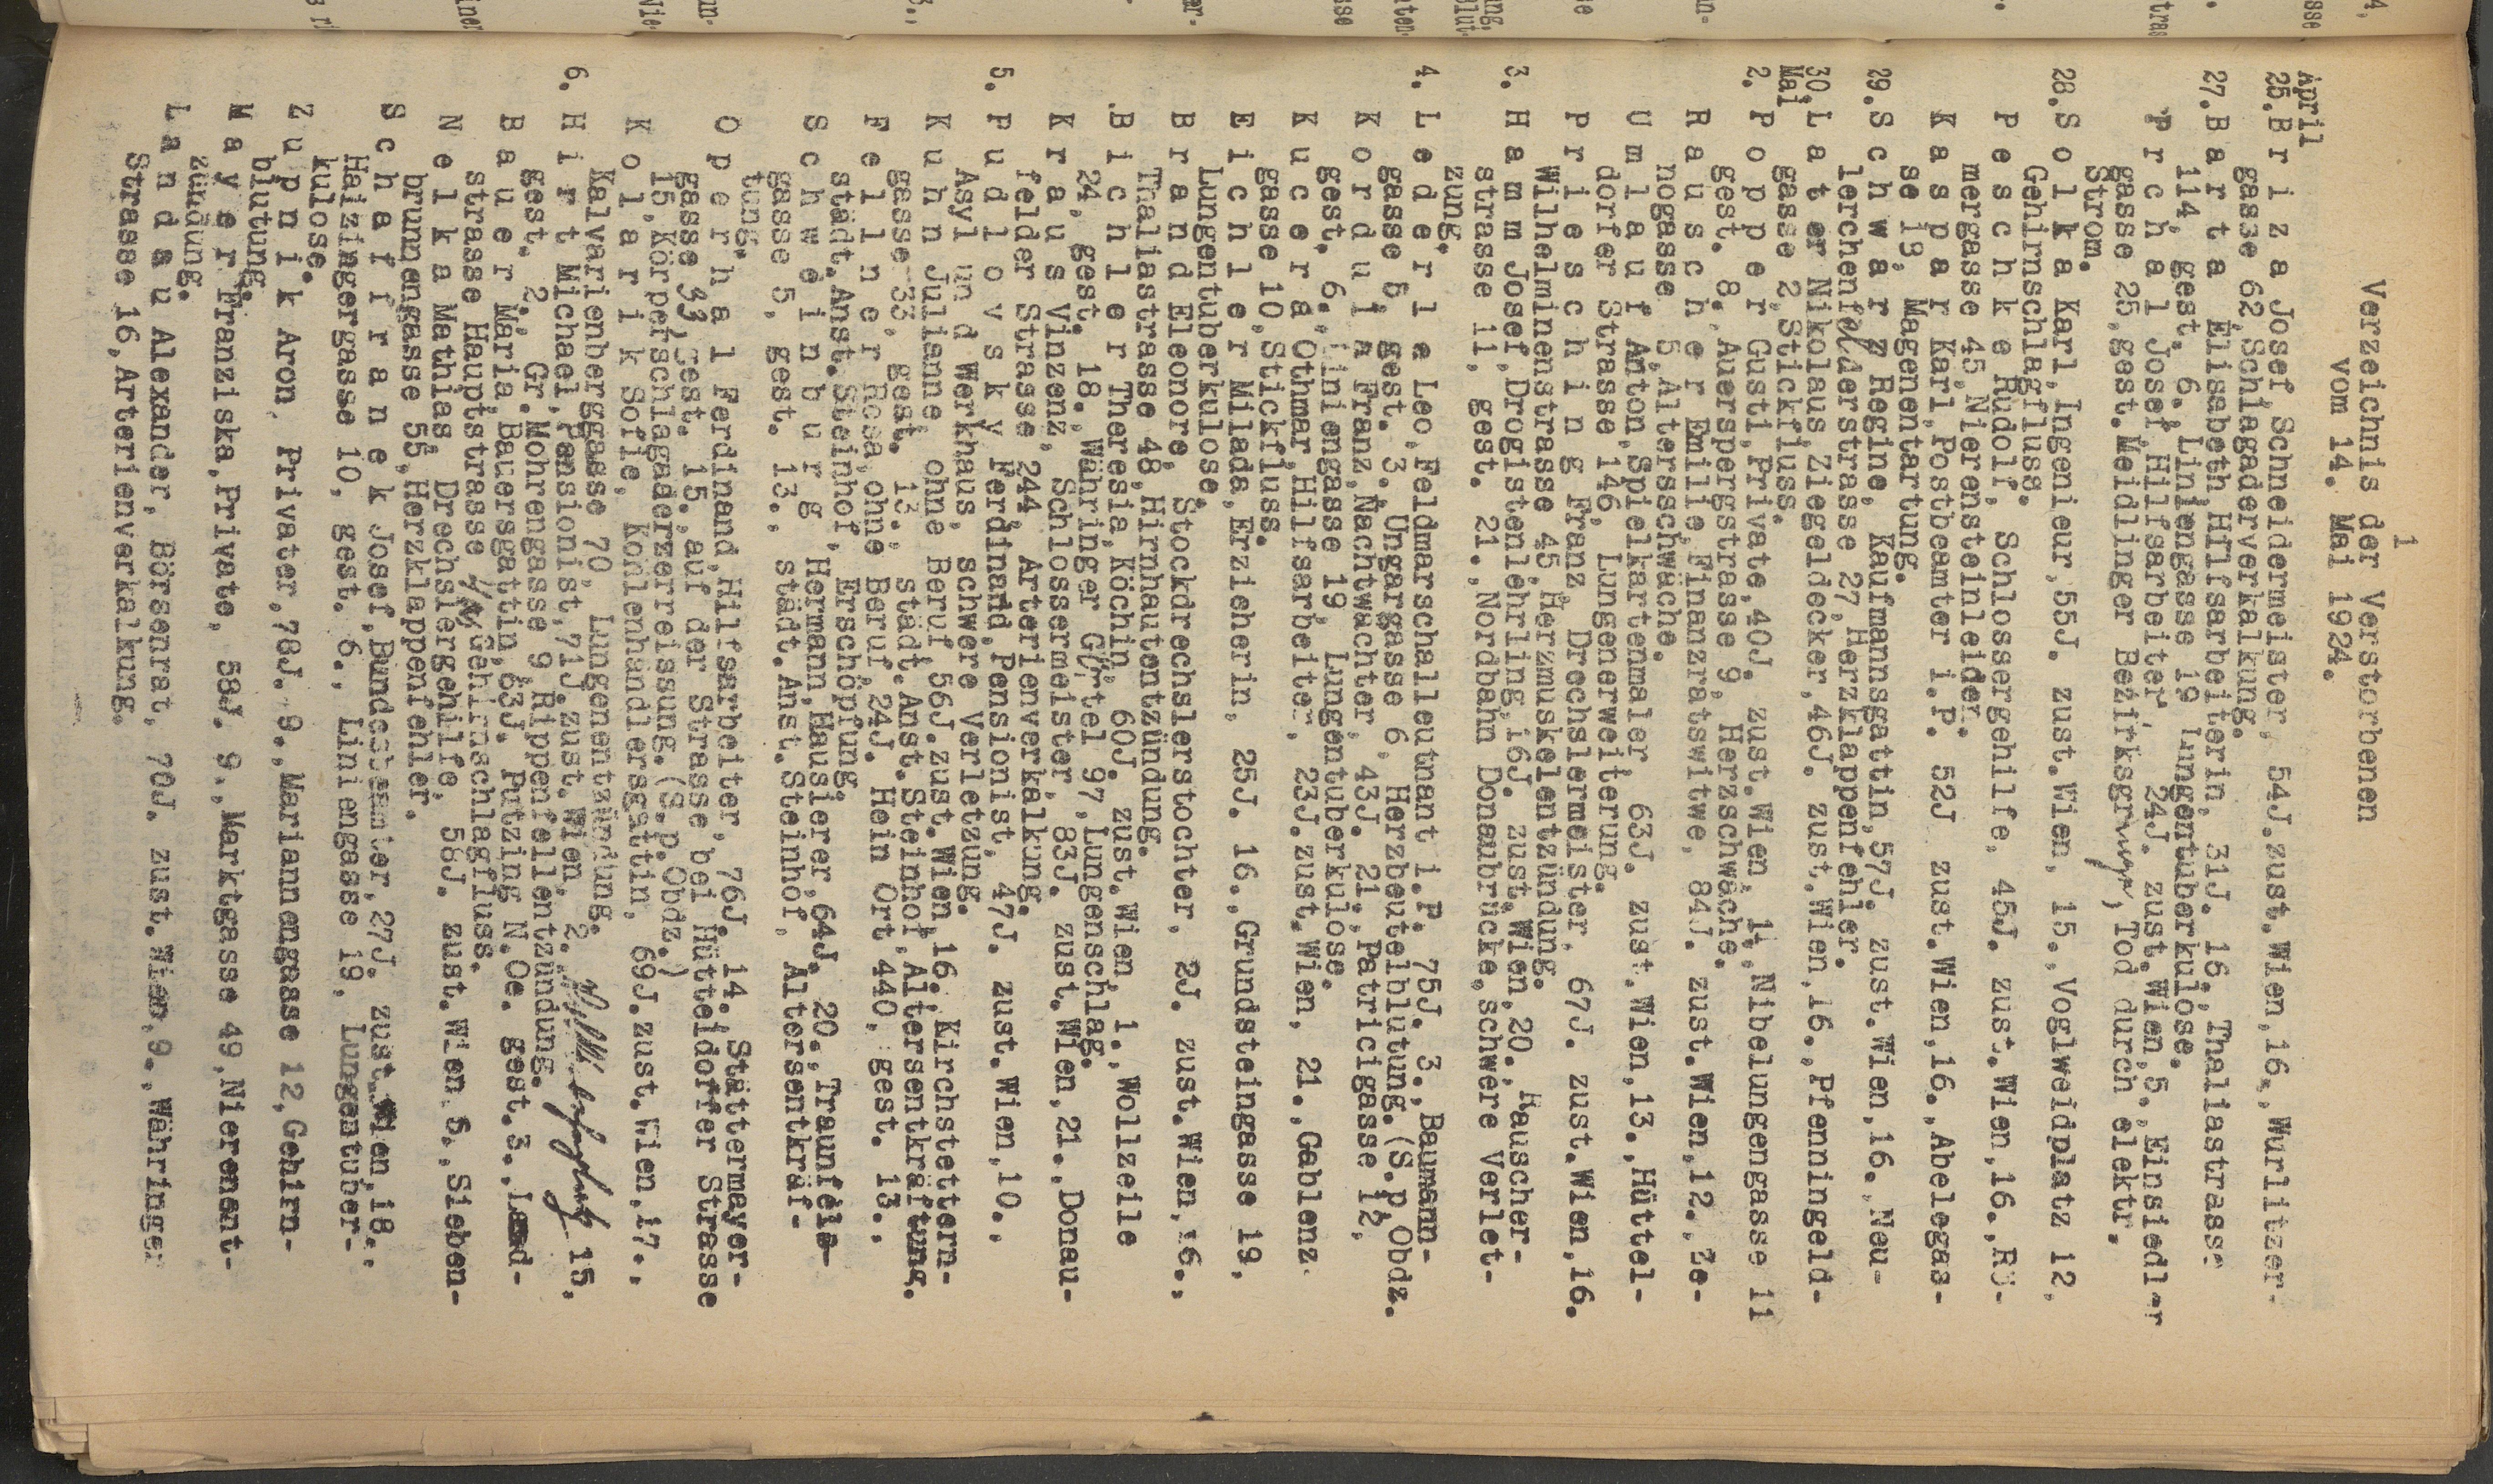 1
Verzeichnis der Verstorbenen
vom 14. Mai 1924.
April
25.B r i z a Josef,Schneidermeister, 54J.zust.Wien,16.,Wurlitzer-
gasse 62,Schlagaderverkalkung.
27.B a r t a Elisabeth,Hilfsarbeiterin, 31J. 16.,Thaliastrasse
114, gest. 6., Liniengasse 19 Lungentuberkulose.
P r c h a l Josef,Hilfsarbeiter 24J. zust.Wien,5.,Einsiedler
gasse 25,gest.Meidlinger Bezirksgruppe, Tod durch elektr.
Strom.
28.S o l k a Karl,Ingenieur,55J. zust.Wien, 15.,Voglweidplatz 12,
Gehirnschlagfluss.
P e s c h k e Rudolf, Schlossergehilfe, 45J. zust.Wien,16.,Rö-
mergasse 45,Nierensteinleiden.
K a s p a r Karl,Postbeamter i.P. 52J zust.Wien,16.,Abelegas-
se 19, Magenentartung.
29.S c h w a r z Regine, Kaufmannsgattin,57J. zust.Wien,16.,Neu-
lerchenfelderstrasse 27,Herzklappenfehler.
30.L a t er Nikolaus,Ziegeldecker,46J. zust.Wien,16.,Pfenningeld-
Mai gasse 2,Stickfluss.
2. P o p p e r Gusti,Private,40J. zust.Wien, 14,Nibelungengasse 11
gest. 8.,Auerspergstrasse 9, Herzschwäche.
R a u s c h e r Emilie,Finanzratswitwe, 84J. zust.Wien,12.,Ze-
nogasse 5,Altersschwäche.
U m l a u f Anton,Spielkartenmaler 63J. zust.Wien,13.,Hüttel-
dorfer Strasse 146, Lungenerweiterung.
P r i e s c h i n g Franz, Drechslermeister, 67J. zust.Wien,16.
Wilhelminenstrasse 45,Herzmuskelentzündung.
3. H a m m Josef,Drogistenlehrling,16J. zust.Wien,20.,Rauscher-
strasse 11, gest. 21.,Nordbahn Donaubrücke,schwere Verlet-
zung.
4. L e d e r l e Leo,Feldmarschalleutnant i.P. 75J. 3.,Baumann-
gasse 6, gest. 3., Ungargasse 6, Herzbeutelblutung.(S.p.Obdz.
K o r d u l a Franz,Nachtwächter, 43J. 21.,Patricigasse 12,
gest. 6.,Liniengasse 19, Lungentuberkulose.
K u c e r a Othmar,Hilfsarbeiter, 23J.zust.Wien, 21.,Gablenz-
gasse 10,Stickfluss.
E i c h l e r Milada,Erzieherin, 25J. 16.,Grundsteingasse 19,
Lungentuberkulose.
B r a n d Eleonore, Stockdrechslerstochter, 2J. zust.Wien,16.,
Thaliastrasse 48,Hirnhautentzündung.
B i c h l e r Theresia,Köchin, 60J. zust.Wien, 1.,Wollzeile
24, gest. 18., Währinger Gürtel 97,Lungenschlag.
K r a u s Vinzenz, Schlossermeister, 83J. zust.Wien,21.,Donau-
felder Strasse 244, Arterienverkalkung.
5. P u d l o v s k y Ferdinand,Pensionist, 47J. zust.Wien,10.,
Asyl und Werkhaus, schwere Verletzung.
K u h n Julianne, ohne Beruf,56J.zust.Wien,16.,Kirchstettern-
gasse 33, gest. 13., städt.Anst.Steinhof,Altersentkräftung.
F e l l n e r Rosa,ohne Beruf,24J. Hein Ort 440, gest. 13.,
städt.Anst.Steinhof, Erschöpfung.
S c h w e i n b u r g Hermann,Hausierer,64J. 20.,Traunfels-
gasse 5, gest. 13., städt.Anst.Steinhof, Altersentkräf-
tung.
O p e r h a l Ferdinand,Hilfsarbeiter, 76J. 14.,Stättermayer-
gasse 31, gest. 15.,auf der Strasse bei Hütteldorfer Strasse
15,Körperschlagaderzerreissung.(S.p.Obdz.)
K o l a r i k Sofie, Kohlenhandlersgattin, 69J.zust.Wien,17.,
Kalvarienberggasse 70, Lungenentzündung.
6. H i r t Michael,Pensionist,71J.zust.Wien, 2., 15,
gest. 2., Gr.Mohrengasse 9,Rippenfellentzündung.
B a u e r Maria,Bauersgattin,63J. Putzing N.Oe. gest.3.,Land-
strasse Hauptstrasse Gehirnschlagfluss.
N e l k a Mathias, Drechslergehilfe, 58J. zust.Wien 6.,Sieben-
brunnengasse 55,Herzklappenfehler.
S c h a f r a n e k Josef,Bundesbeamter,27J. zust.Wien,18.,
Haizingergasse 10, gest. 6., Liniengasse 19, Lungentuber-
kulose.
Z u p n i k Aron, Privater,78J. 9.,Mariannengasse 12,Gehirn-
blutung.
M a y e r Franziska,Private, 58J. 9.,Marktgasse 49,Nierenent-
zündung.
L a n d a u Alexander, Börsenrat, 70J. zust.Wien,9.,Währinger
Strasse 16,Arterienverkalkung.